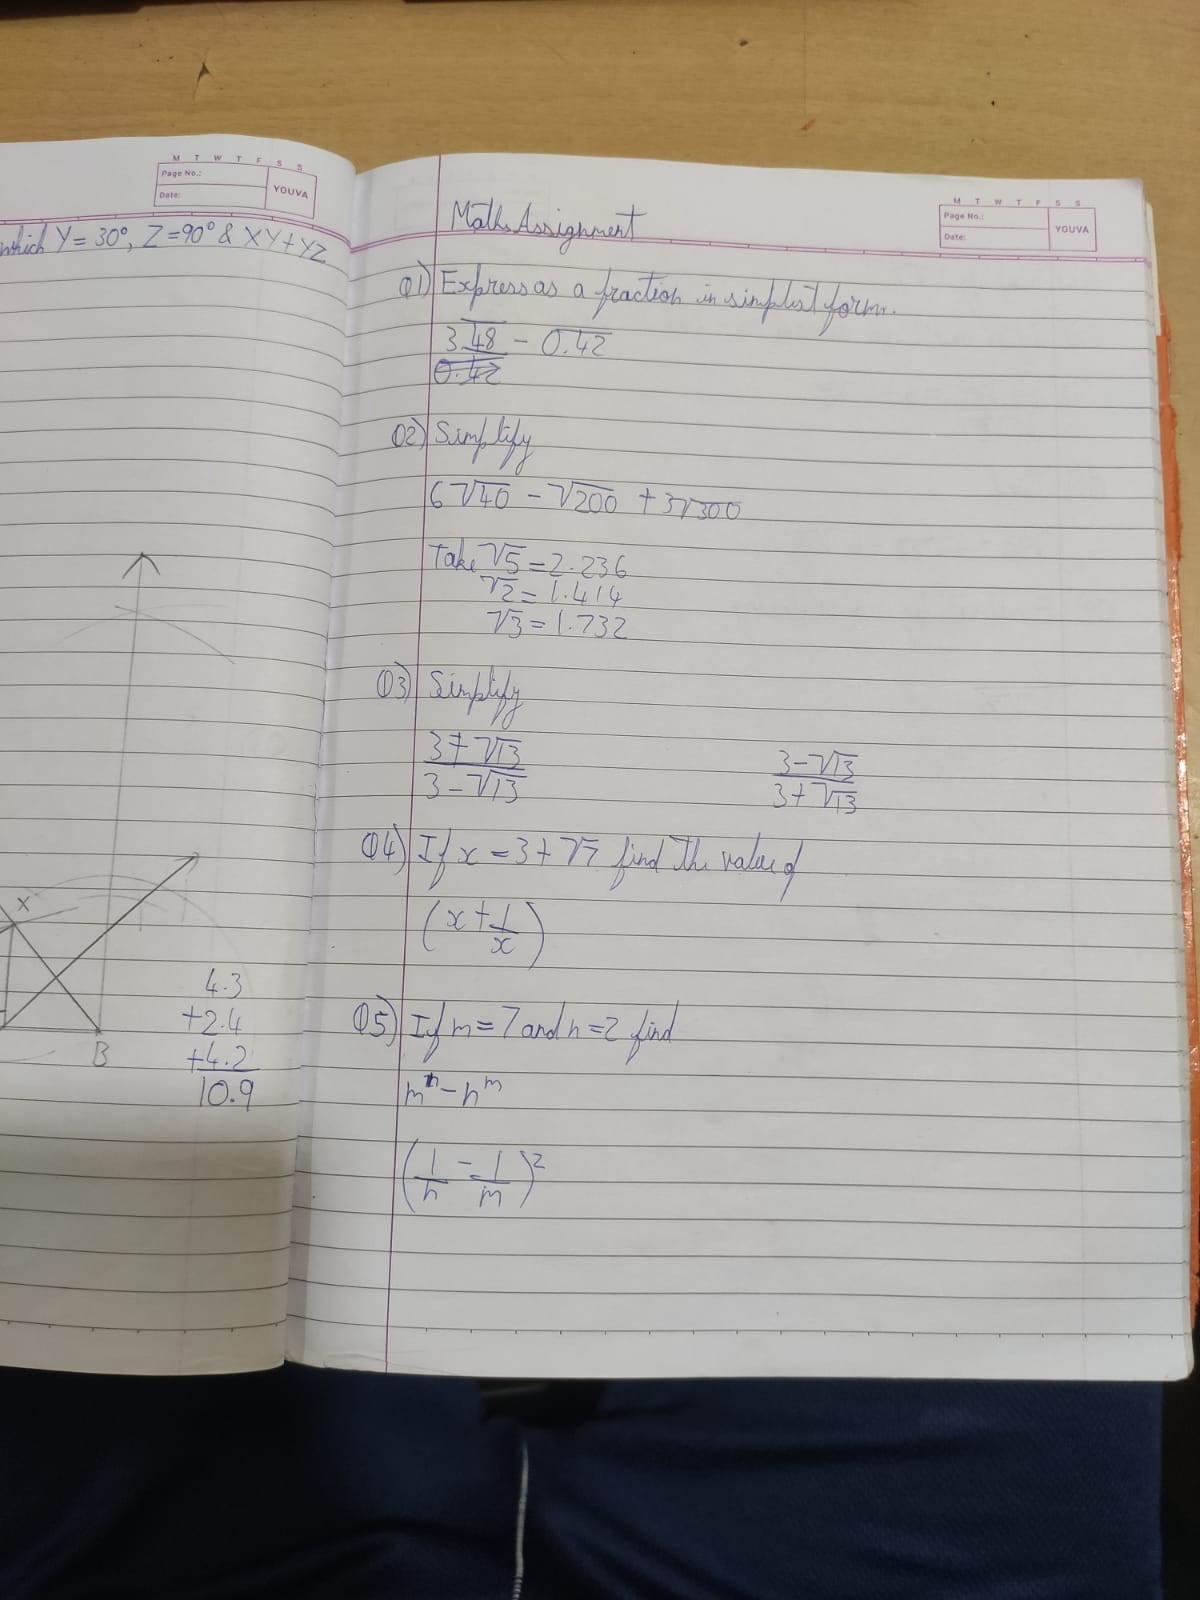 M T W T F S S
Page No.:
Date:
YOUVA
which Y = 30°, Z = 90° & XY + YZ
X
B
4.3
+2.4
+4.2
10.9
M T W T F S S
Page No.:
Date:
YOUVA
Maths Assignment
Q1) Express as a fraction in simplest form.
3.4̅8̅ - 0.4̅2̅
0.42
Q2) Simplify
6√40 - √200 + 3√300
Take √5 = 2.236
√2 = 1.414
√3 = 1.732
Q3) Simplify
3+√13 / 3-√13
3-√13 / 3+√13
Q4) If x = 3+√7 find the value of
(x + 1/x)
Q5) If m = 7 and n = 2 find
mⁿ - nᵐ
(1/n - 1/m)²